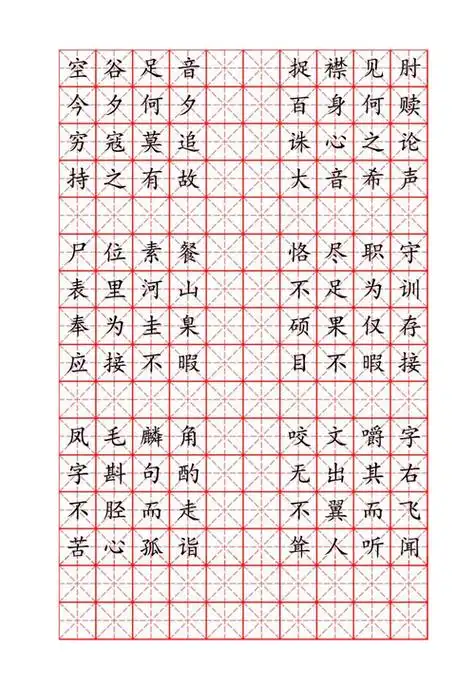 空谷足音 捉襟见肘
今夕何夕 百身何赎
穷寇莫追 诛心之论
持之有故 大音希声
尸位素餐 恪尽职守
表里河山 不足为训
奉为圭臬 硕果仅存
应接不暇 目不暇接
凤毛麟角 咬文嚼字
字斟句酌 无出其右
不胫而走 不翼而飞
苦心孤诣 耸人听闻